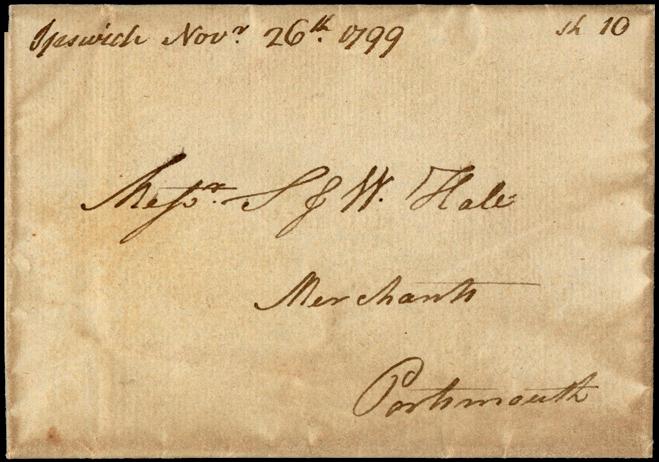 Ipswich Novr. 26th. 1799 Sh 10
Messrs. S & W. Hale
Merchants
Portsmouth